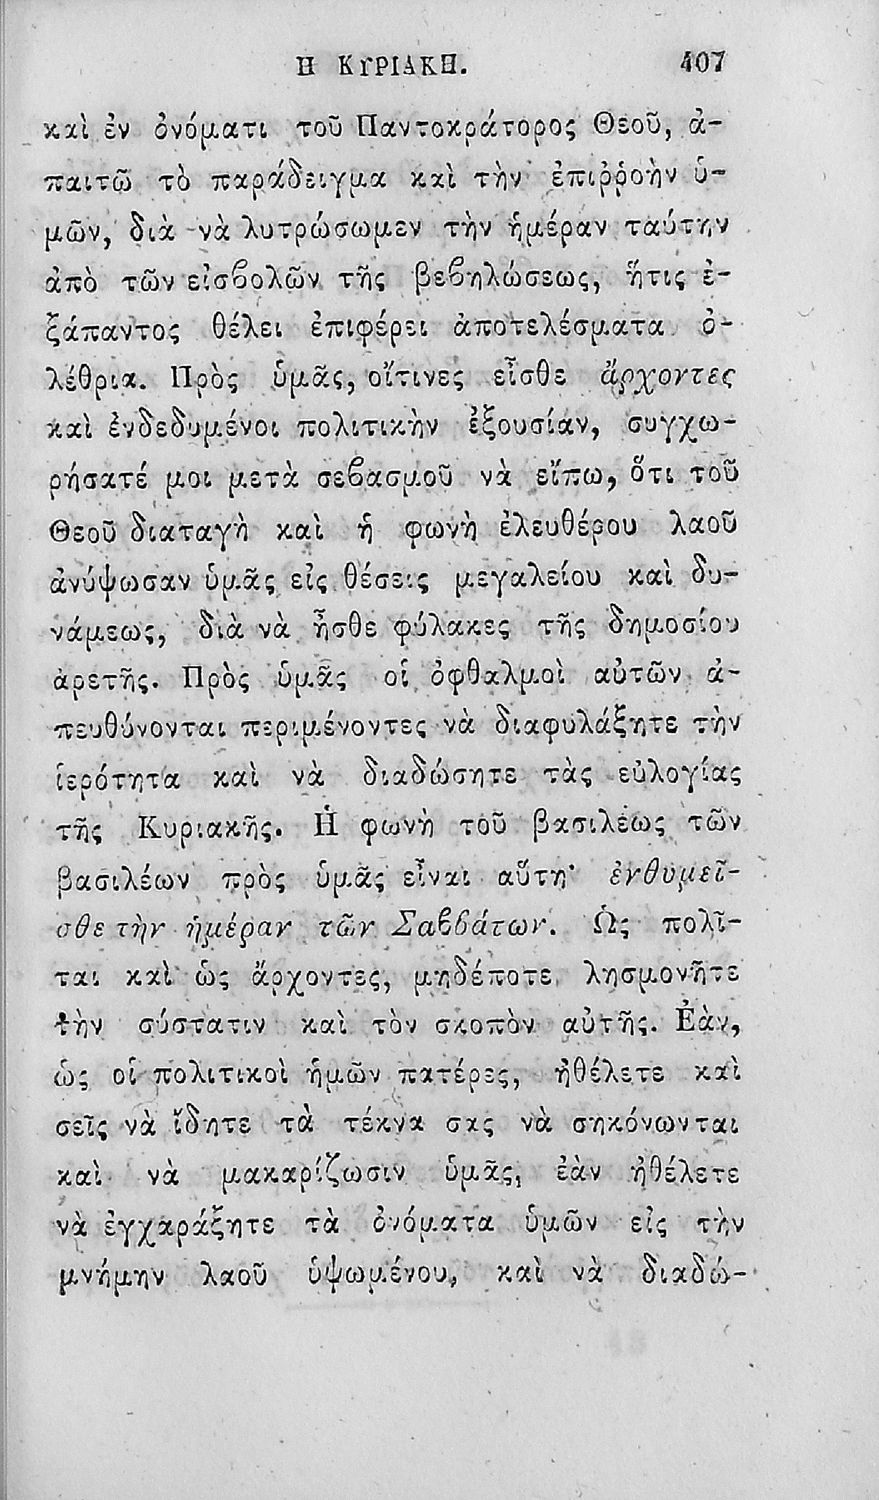 Η ΚΥΡΙΑΚΗ. 407
καὶ ἐν ὀνόματι τοῦ Παντοκράτορος Θεοῦ, ἀ-
παιτῶ τὸ παράδειγμα καὶ τὴν ἐπιῤῥοὴν ὑ-
μῶν, διὰ νὰ λυτρώσωμεν τὴν ἡμέραν ταύτην
ἀπὸ τῶν εἰσϐολῶν τῆς βεϐηλώσεως, ἥτις ἐ-
ξάπαντος θέλει ἐπιφέρει ἀποτελέσματα ὀ-
λέθρια. Πρὸς ὑμᾶς, οἵτινες εἶσθε ἄρχοντες
καὶ ἐνδεδυμένοι πολιτικὴν ἐξουσίαν, συγχω-
ρήσατέ μοι μετὰ σεϐασμοῦ νὰ εἴπω, ὅτι τοῦ
Θεοῦ διαταγὴ καὶ ἡ φωνὴ ἐλευθέρου λαοῦ
ἀνύψωσαν ὑμᾶς εἰς θέσεις μεγαλείου καὶ δυ-
νάμεως, διὰ νὰ ἦσθε φύλακες τῆς δημοσίου
ἀρετῆς. Πρὸς ὑμᾶς οἱ ὀφθαλμοὶ αὐτῶν ἀ-
πευθύνονται περιμένοντες νὰ διαφυλάξητε τὴν
ἱερότητα καὶ νὰ διαδώσητε τὰς εὐλογίας
τῆς Κυριακῆς. Ἡ φωνὴ τοῦ βασιλέως τῶν
βασιλέων πρὸς ὑμᾶς εἶναι αὕτη· ἐνθυμεῖ-
σθε τὴν ἡμέραν τῶν Σαϐϐάτων. Ὡς πολῖ-
ται καὶ ὡς ἄρχοντες, μηδέποτε λησμονῆτε
τὴν σύστατιν καὶ τὸν σκοπὸν αὐτῆς. Ἐὰν,
ὡς οἱ πολιτικοὶ ἡμῶν πατέρες, ἠθέλετε καὶ
σεῖς νὰ ἴδητε τὰ τέκνα σας νὰ σηκόνωνται
καὶ νὰ μακαρίζωσιν ὑμᾶς, ἐὰν ἠθέλετε
νὰ ἐγχαράξητε τὰ ὀνόματα ὑμῶν εἰς τὴν
μνήμην λαοῦ ὑψωμένου, καὶ νὰ διαδώ-